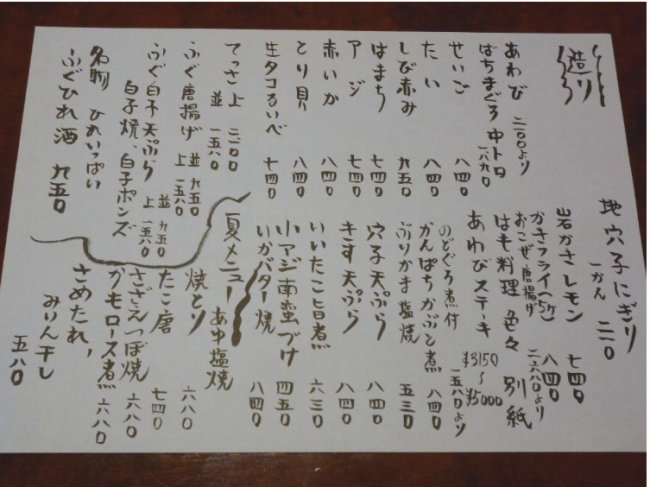 造り
あわび 二一〇〇より
はちまぐろ 中トロ 一八九〇
せいご 八四〇
たい 八四〇
しび赤み 九五〇
はまち 七四〇
アジ 七四〇
赤いか 八四〇
とり貝 八四〇
生タコるいべ 七四〇
てっさ 上 二一〇〇
並 一五八〇
ふぐ唐揚げ 並 九五〇
上 一五八〇
ふぐ白子天ぷら 並 九五〇
白子焼、白子ポンズ 上 一五八〇
名物 ひれいっぱい
ふぐひれ酒 九五〇
地穴子にぎり
一かん 二一〇
岩がきレモン 七四〇
かきフライ(5ケ) 八四〇
おこぜ唐揚げ 二六八〇より
はも料理 色々 別紙
あわびステーキ ¥3150〜¥5000
のどぐろ煮付 一五八〇より
かんぱちかぶと煮 八四〇
ぶりかま塩焼 五三〇
穴子天ぷら 八四〇
きす天ぷら 八四〇
いいたこ旨煮 六三〇
小アジ南蛮づけ 四五〇
いかバター焼 八四〇
夏メニュー あゆ塩焼
焼とり 六八〇
たこ唐 七四〇
さざえつぼ焼 六八〇
かもロース煮 六八〇
さめたれ、
みりん干し
五八〇